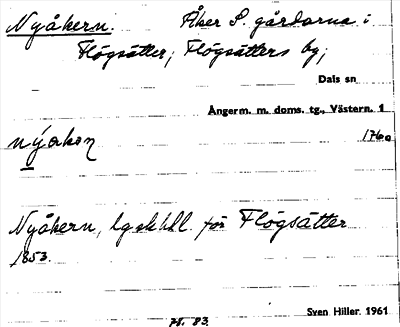 Nyåkern. Åker S. gårdarna i
Flögsätter, Flögsätters by,
Dals sn
Ångerm. m. doms. tg., Västern. 1
nýakon 1760
Nyåkern, lgskhll. för Flögsätter
1853.
H. 83.
Sven Hiller. 1961